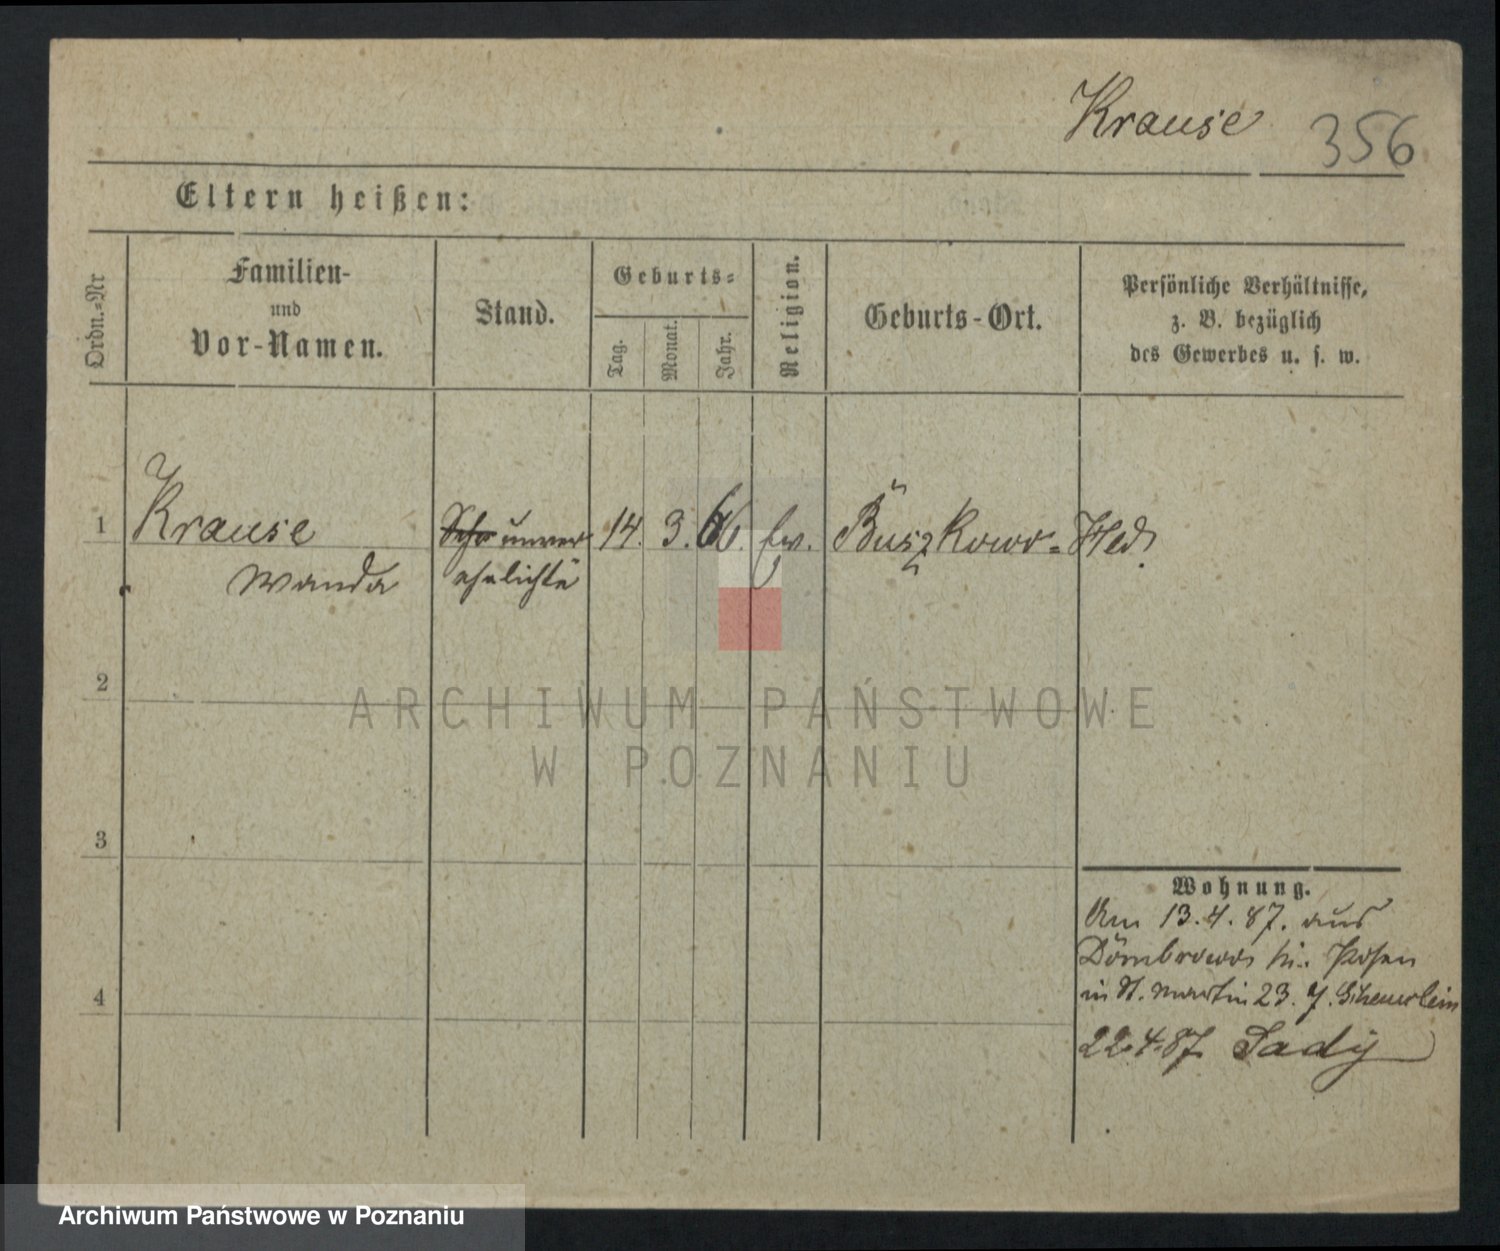 Krause 356
Eltern heißen:
Ordn.-Nr
Familien-
und
Vor-Namen.
Stand.
Geburts-
Tag.
Monat.
Jahr.
Religion.
Geburts-Ort.
Persönliche Verhältnisse,
z. B. bezüglich
des Gewerbes u. s. w.
1
Krause
Wanda
unver
ehelichte
14. 3. 66. Ev.
2
ARCHIWUM PAŃSTWOWE
W POZNANIU
3
4
Wohnung.
Am 13.4.87. aus
Posen
in St. Martin 23.
22.4.87. Sady
Archiwum Państwowe w Poznaniu